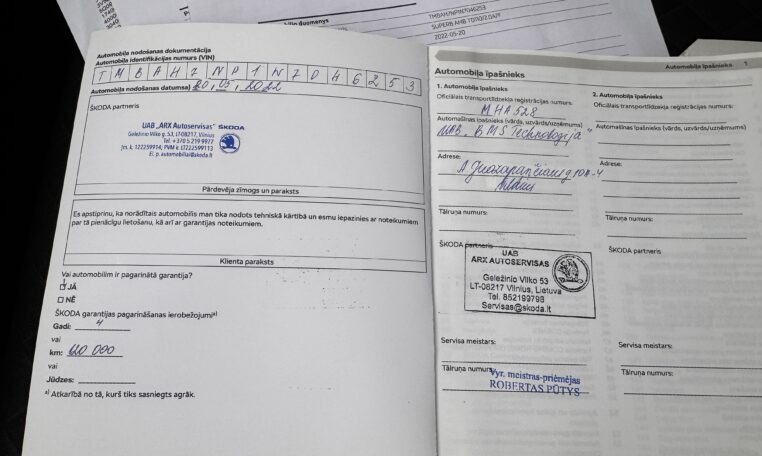 TMBAH7NP1N7046253
SUPERB AMB TD110/2.0A7F
2022-05-20
Automobiļa nodošanas dokumentācija
Automobiļa identifikācijas numurs (VIN)
T M B A H 7 N P 1 N 7 0 4 6 2 5 3
Automobiļa nodošanas datums
20, 05, 2022
ŠKODA partneris
UAB „ARX Autoservisas" ŠKODA
Geležinio Vilko g. 53, LT-08217, Vilnius
Tel. +370 5 219 9977
Įm. k. 122259914; PVM k. LT222599113
El. p. automobiliai@skoda.lt
Pārdevēja zīmogs un paraksts
Es apstiprinu, ka norādītais automobilis man tika nodots tehniskā kārtībā un esmu iepazinies ar noteikumiem
par tā pienācīgu lietošanu, kā arī ar garantijas noteikumiem.
Klienta paraksts
Vai automobilim ir pagarinātā garantija?
JĀ
NĒ
ŠKODA garantijas pagarināšanas ierobežojumi a)
Gadi: 4
vai
km: 120 000
vai
Jūdzes:
a) Atkarībā no tā, kurš tiks sasniegts agrāk.
Automobiļa īpašnieks 1
Automobiļa īpašnieks
1. Automobiļa īpašnieks
Oficiālais transportlīdzekļa reģistrācijas numurs:
MHA528
Automašīnas īpašnieks (vārds, uzvārds/uzņēmums)
UAB „BMS Technologija"
Adrese:
A. Juozapavičiaus g. 10A-4
Vilnius
Tālruņa numurs:
ŠKODA partneris
UAB
ARX AUTOSERVISAS
Geležinio Vilko 53
LT-08217 Vilnius, Lietuva
Tel. 852199798
Servisas@skoda.lt
Servisa meistars:
Tālruņa numurs:
Vyr. meistras-priėmėjas
ROBERTAS PŪTYS
2. Automobiļa īpašnieks
Oficiālais transportlīdzekļa reģistrācijas numurs:
Automašīnas īpašnieks (vārds, uzvārds/uzņēmums)
Adrese:
Tālruņa numurs:
ŠKODA partneris
Servisa meistars:
Tālruņa numurs: